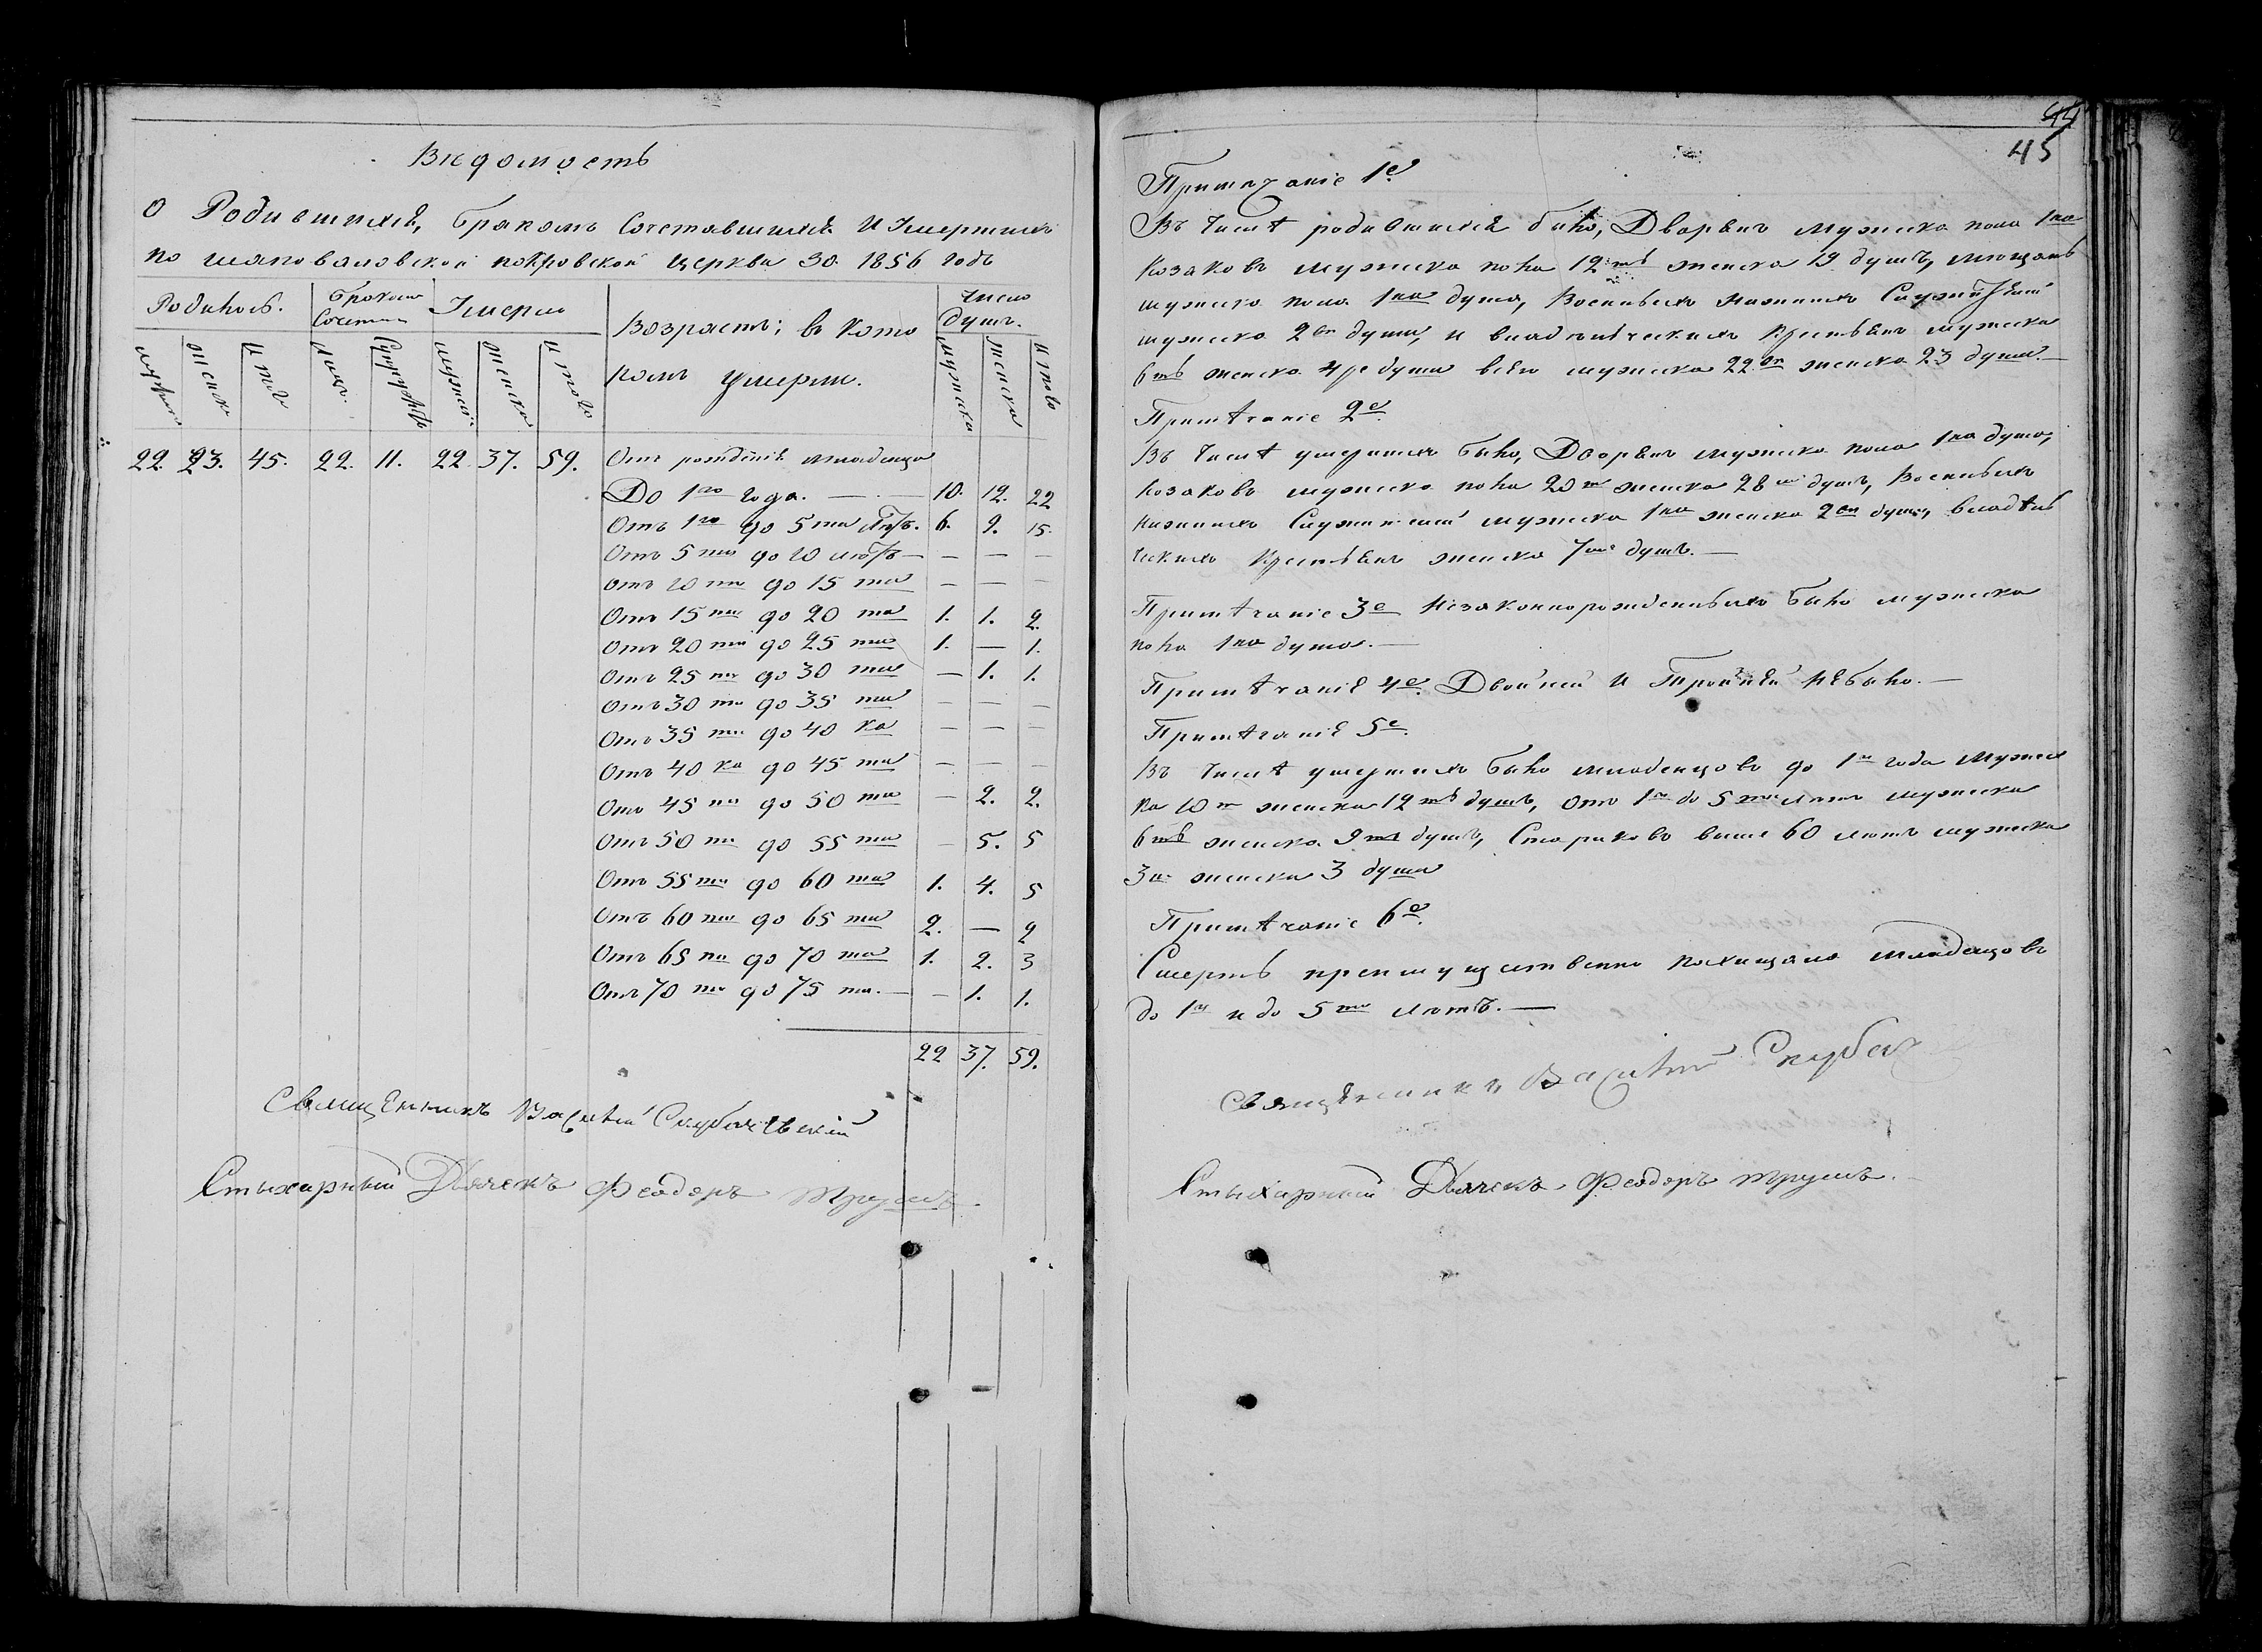 Вѣдомость
О Родившихся, бракомъ Сочетавшихся И Умершихъ
по шаповаловской покровской Церкви За 1856 годъ
Родилось. Бракомъ Сочетан Умерло Возрастъ, въ кото ромъ умерли. Число душъ.
мужска женска итого лицъ. Супружествъ мужска женска итого мужска женска итого
22. 23. 45. 22. 11. 22. 37. 59. Отъ рожденія младенца
До 1го года. — 10. 12. 22
Отъ 1го до 5ти лѣтъ. 6. 9. 15.
Отъ 5ти до 10 лѣтъ — — — —
Отъ 10ти до 15ти — — —
Отъ 15ти до 20ти 1. 1. 2.
Отъ 20ти до 25ти 1. — 1.
Отъ 25ти до 30ти — 1. 1.
Отъ 30ти до 35ти — — —
Отъ 35ти до 40ка — — —
Отъ 40ка до 45ти — — —
Отъ 45ти до 50ти — 2. 2.
Отъ 50ти до 55ти — 5. 5
Отъ 55ти до 60ти 1. 4. 5
Отъ 60ти до 65ти 2. — 2
Отъ 65ти до 70ти 1. 2. 3
Отъ 70ти до 75ти. — — 1. 1.
22 37. 59.
Священникъ Василій
Стихарный Дьячекъ Феодоръ Трушъ.
44
45
Примѣчаніе 1е
Въ числѣ родившихся было, Дворянъ мужска пола 1на
Козаковъ мужска пола 12ть женска 19 душъ, мѣщанъ
мужска пола 1на душа, Военныхъ нижнихъ Служителей
мужска 2ве души, и владѣльческихъ Крестьянъ мужска
6ть женска 4ре души всего мужска 22ве женска 23 души.—
Примѣчаніе 2е.
Въ числѣ умершихъ было, Дворянъ мужска пола 1на душа,
Козаковъ мужска пола 20ть женска 28мь душъ, Военныхъ
нижнихъ Служителей мужска 1на женска 2ве души, владѣль
ческихъ Крестьянъ женска 7мь душъ.—
Примѣчаніе 3е Незаконнорожденныхъ было мужска
пола 1на душа.—
Примѣчаніе 4е. Двойней и Тройней небыло.—
Примѣчаніе 5е.
Въ числѣ умершихъ было младенцовъ до 1го года мужес
ка 10ть женска 12ть душъ, отъ 1го до 5ти лѣтъ мужска
6ть женска 9ть душъ, Стариковъ выше 60 лѣтъ мужска
3и женска 3 души
Примѣчаніе 6е.
Смерть преимущественно похищала младенцовъ
до 1го и до 5ти лѣтъ.—
Священникъ Василій
Стихарный Дьячекъ Феодоръ Трушъ.